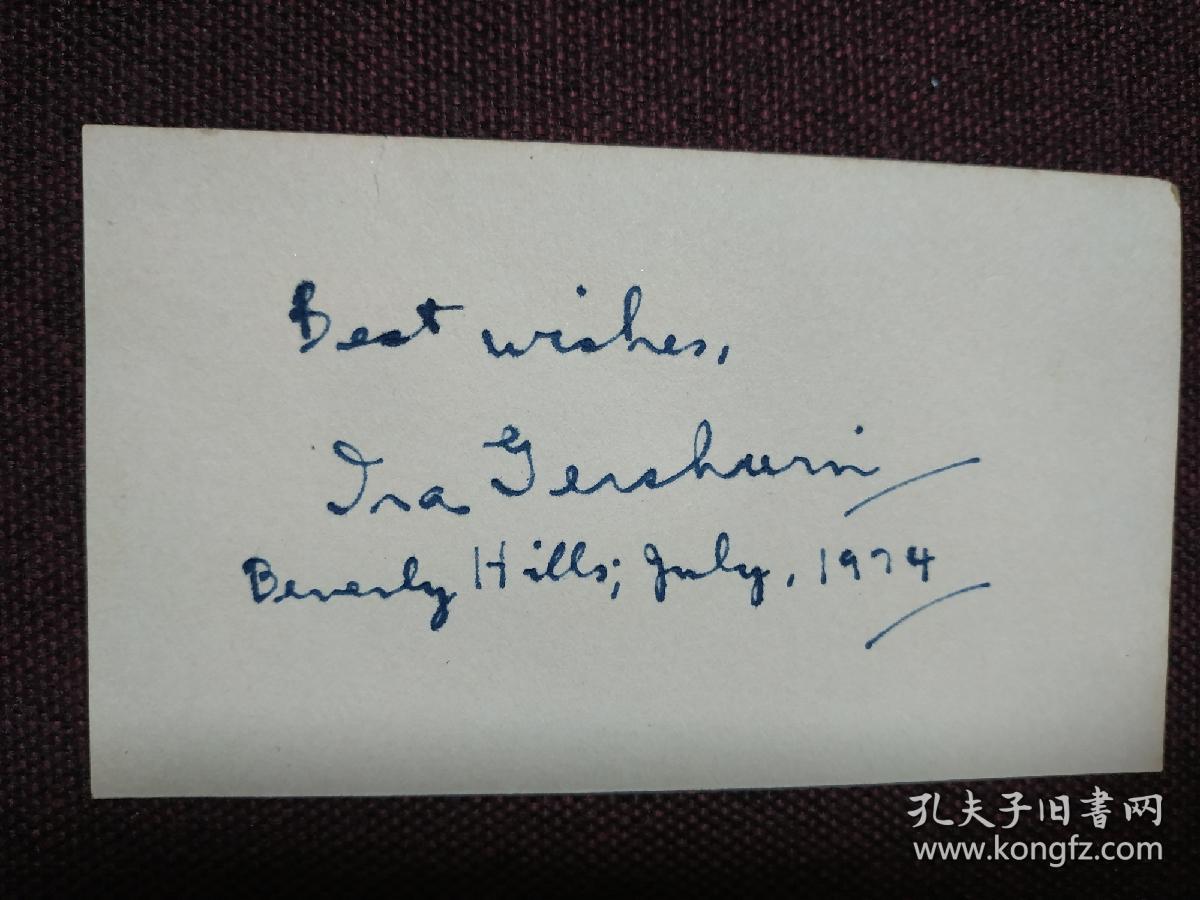 Best wishes,
Ira Gershwin
Beverly Hills; July, 1974
孔夫子旧書网
www.kongfz.com